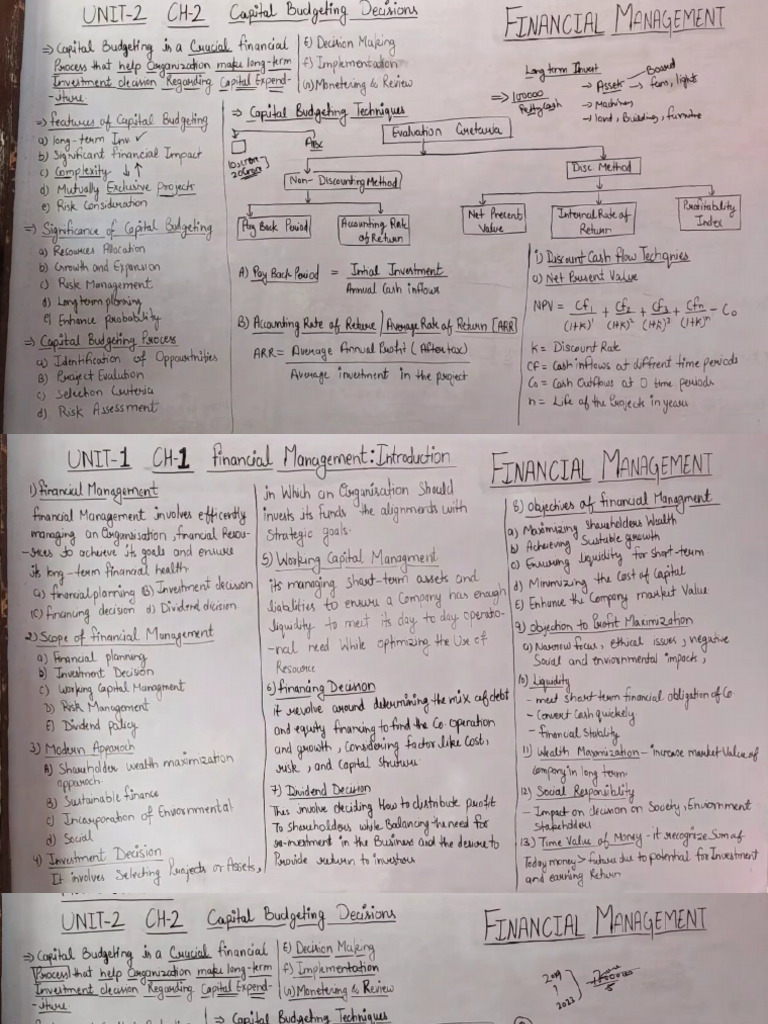 UNIT-2 CH-2 Capital Budgeting Decisions
FINANCIAL MANAGEMENT
⇒ Capital Budgeting is a Crucial financial
Process that help Organization make long-term
Investment decision Regarding Capital Expend-
-iture.
⇒ Features of Capital Budgeting
a) long-term Inv ✓
b) Significant financial Impact
c) Complexity ↓↑
d) Mutually Exclusive Projects
e) Risk Consideration
⇒ Significance of Capital Budgeting
a) Resources Allocation
b) Growth and Expansion
c) Risk Management
d) Long term planning
e) Enhance probability
⇒ Capital Budgeting Process
a) Identification of Oppourtunities
B) Project Evalution
c) Selection Criteria
d) Risk Assessment
E) Decision Making
f) Implementation
G) Monetering & Review
⇒ Capital Budgeting Techniques
ABC
Evaluation Cretaria
Non-Discounting Method
Disc Method
Pay Back Period
Accounting Rate
of Return
Net Precent
Value
Internal Rate of
Return
Profitability
Index
Long term Invest
⇒ 100000
Petty Cash
→ Assets → Board
→ fans, lights
→ Machines
→ land, Building, furniture
A) Pay Back Period = Intial Investment
Annual Cash inflows
B) Accounting Rate of Return / Average Rate of Return [ARR]
ARR = Average Annual Profit (After tax)
Average investment in the project
1) Discount Cash flow Techqnies
a) Net Present Value
NPV = Cf1/(1+K)^1 + Cf2/(1+K)^2 + Cf3/(1+K)^3 + Cfn/(1+K)^n - Co
K = Discount Rate
CF = Cash inflows at diffrent time periods
Co = Cash Outflows at 0 time periods
n = Life of the Projects in years
UNIT-1 CH-1 financial Management: Introduction
FINANCIAL MANAGEMENT
1) financial Management
financial Management involves efficently
managing an Organisation, financial Resou-
-rces to achieve its goals and ensure
its long-term financial health
a) financial planning B) Investment decision
(C) financing decision d) Dividend decision
2) Scope of financial Management
a) Financial planning
b) Investment Decision
c) Working Capital Managment
D) Risk Management
E) Dividend policy
3) Modern Approach
A) Shareholder wealth maximization
approach
B) Sustainable finance
c) Incorporation of Envornmental
d) Social
4) Investment Decision
It involves Selecting Projects or Assets,
in Which an Organisation Should
invests its funds the alignments with
Strategic goals.
5) Working Capital Managment
its managing short-term assets and
liabilities to ensure a Company has enough
liquidity to meet its day to day operatio-
-nal need While optimizing the Use of
Resource
6) financing Decision
it revolve around determining the mix of debt
and equity financing to find the Co. operation
and growth, Considering factor like Cost,
risk, and Capital struture.
7) Dividend Decision
This involve deciding How to distribute profit
To shareholders while Balancing the need for
re-investment in the Business and the desire to
Provide return to investors
8) Objectives of financial Managment
a) Maximizing shareholders Wealth
b) Achieving Sustable growth
c) Ensuring liquidity for short-term
d) Minimizing the Cost of Capital
E) Enhance the Company market Value
9) Objection to Profit Maximization
a) Narrow focus, ethical issues, negative
Social and enviornmental impacts,
10) Liquidity
- meet short term financial obligation of Co
- Convert Cash quickely
- financial Stability
11) Wealth Maximization - increase market Value of
Company in long term
12) Social Responsiblity
- Impact on decision on Society, Envornment
Stakeholders
13) Time Value of Money - it recognize Sum of
Today money > future due to potential for Investment
and earning Return
UNIT-2 CH-2 Capital Budgeting Decisions
FINANCIAL MANAGEMENT
⇒ Capital Budgeting is a Crucial financial
Process that help Organization make long-term
Investment decision Regarding Capital Expend-
-iture
E) Decision Making
f) Implementation
G) Monetering & Review
⇒ Capital Budgeting Techniques
2019
2023